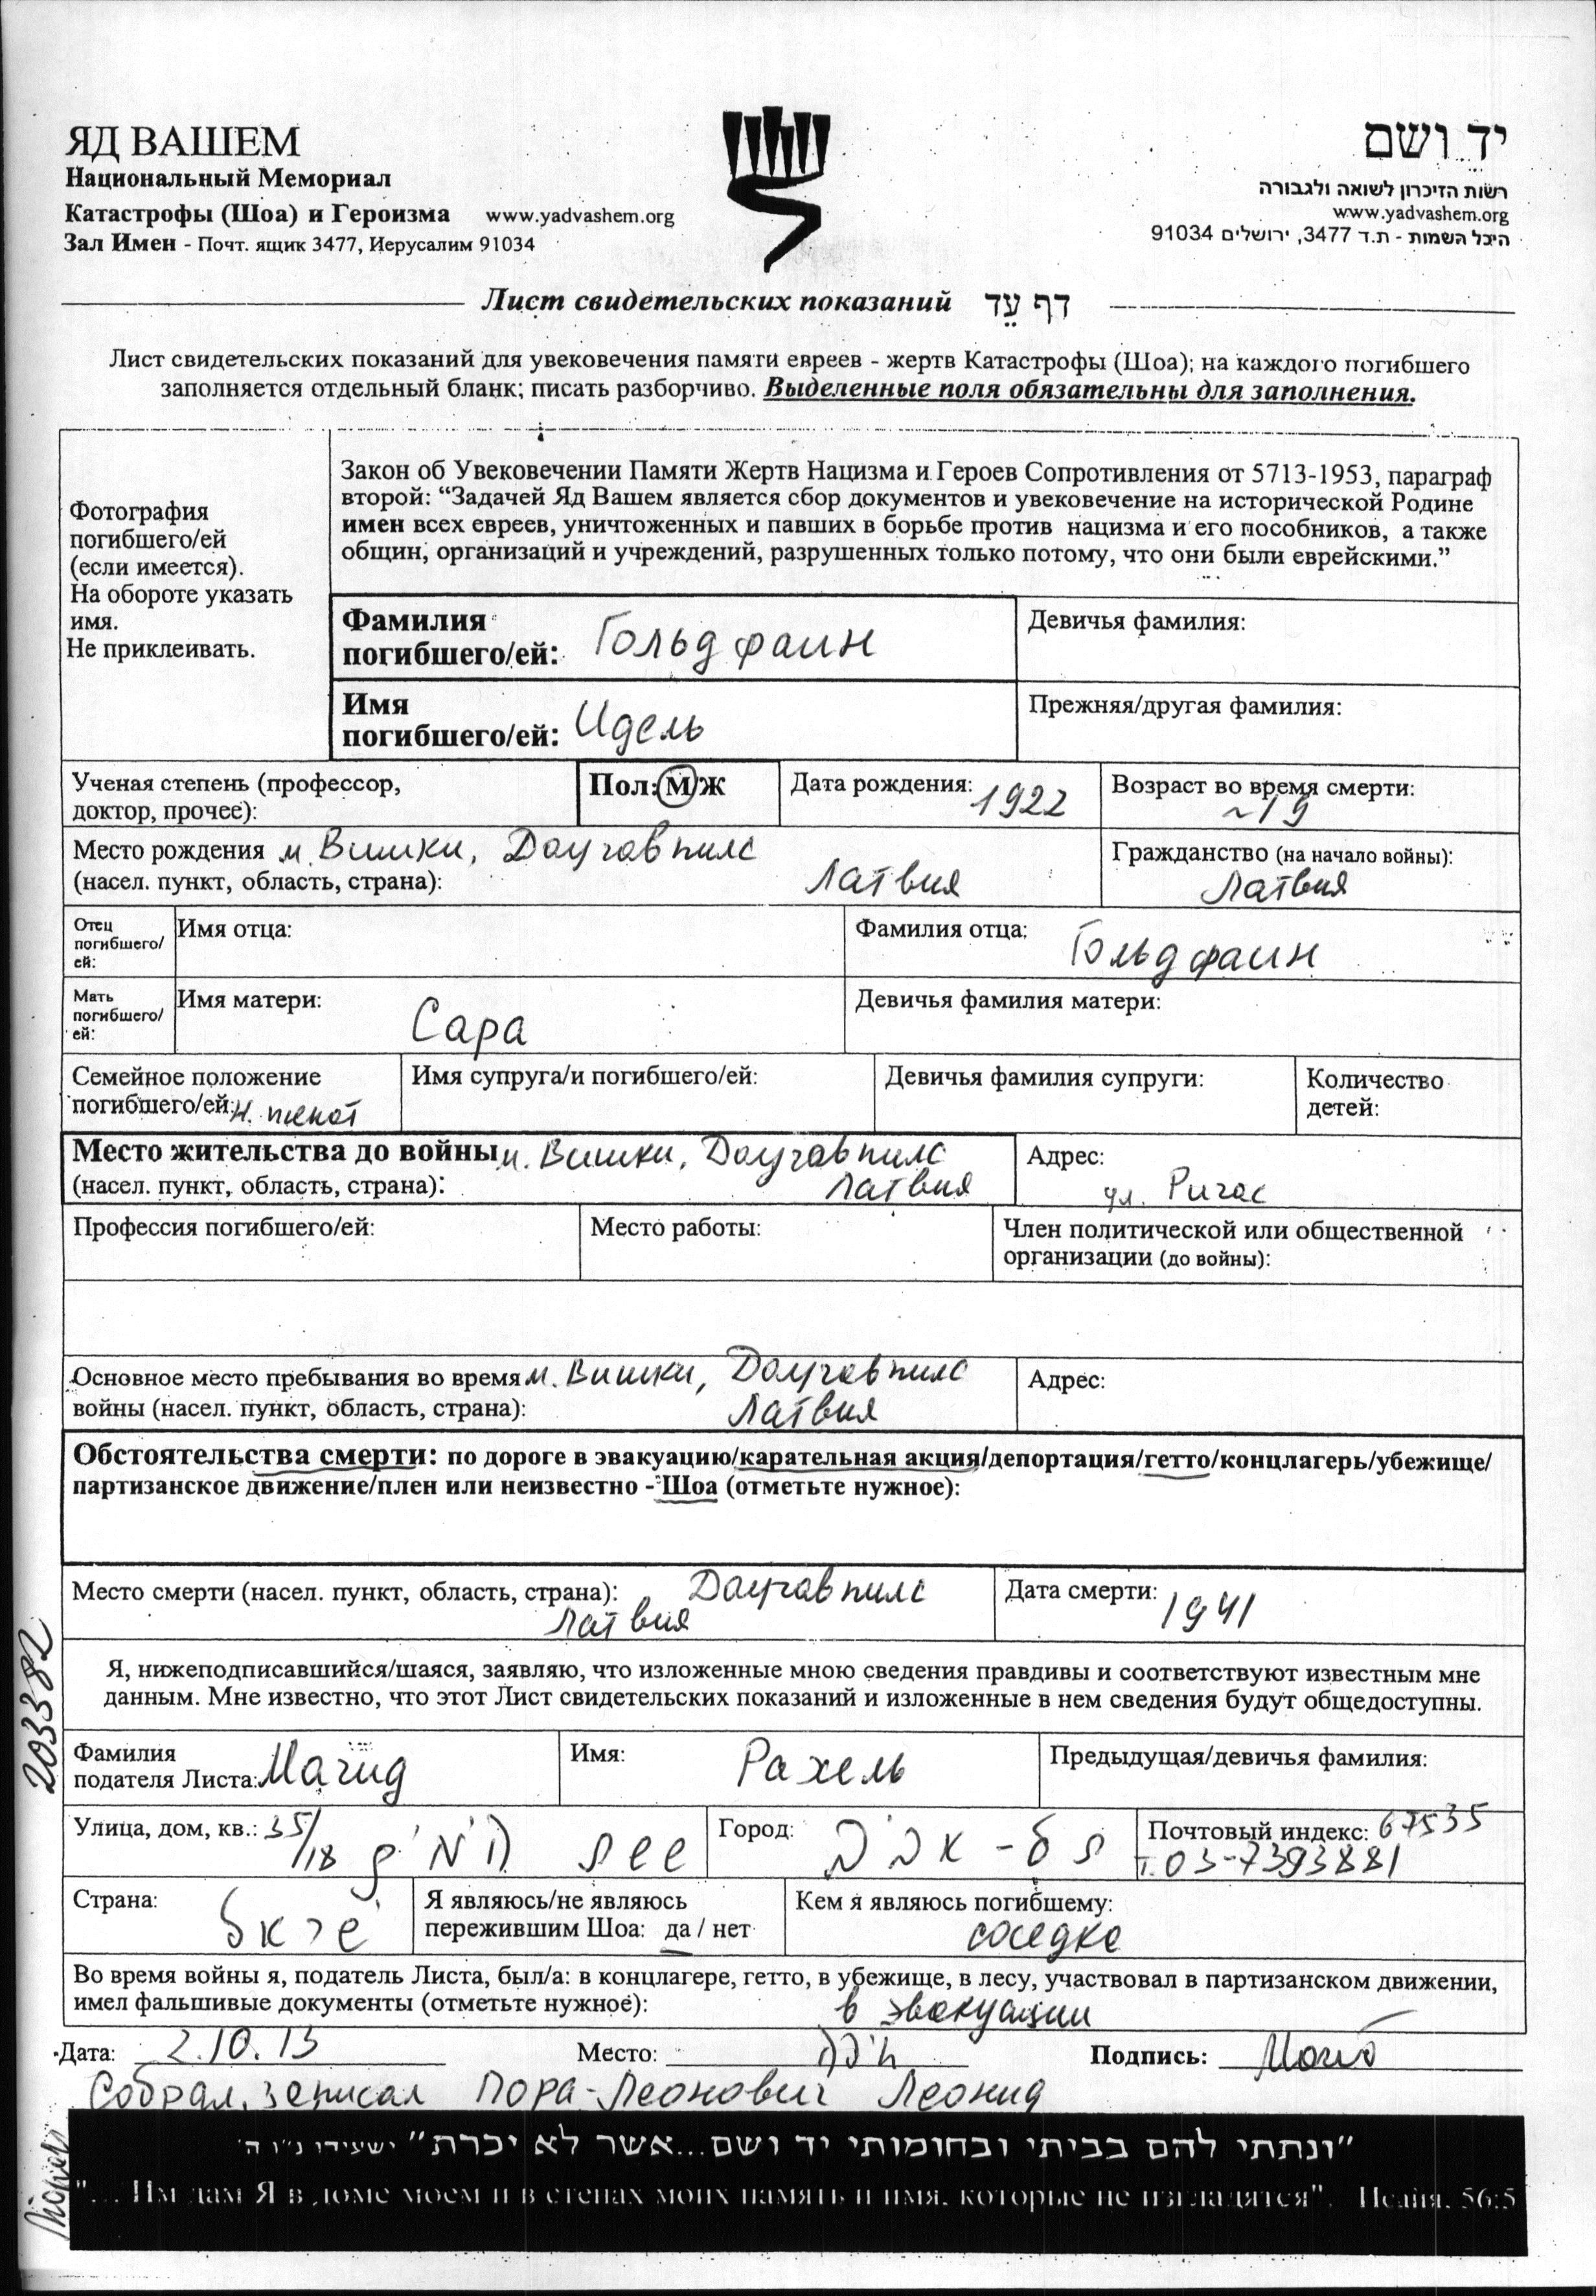 ЯД ВАШЕМ
Национальный Мемориал
Катастрофы (Шоа) и Героизма www.yadvashem.org
Зал Имен - Почт. ящик 3477, Иерусалим 91034
יד ושם
רשות הזיכרון לשואה ולגבורה
www.yadvashem.org
היכל השמות - ת.ד 3477, ירושלים 91034
Лист свидетельских показаний דף עֵד
Лист свидетельских показаний для увековечения памяти евреев - жертв Катастрофы (Шоа); на каждого погибшего
заполняется отдельный бланк; писать разборчиво. Выделенные поля обязательны для заполнения.
Фотография
погибшего/ей
(если имеется).
На обороте указать
имя.
Не приклеивать.
Закон об Увековечении Памяти Жертв Нацизма и Героев Сопротивления от 5713-1953, параграф
второй: “Задачей Яд Вашем является сбор документов и увековечение на исторической Родине
имен всех евреев, уничтоженных и павших в борьбе против нацизма и его пособников, а также
общин, организаций и учреждений, разрушенных только потому, что они были еврейскими.”
Фамилия
погибшего/ей: Гольдфаин
Девичья фамилия:
Имя
погибшего/ей: Идель
Прежняя/другая фамилия:
Ученая степень (профессор,
доктор, прочее):
Пол: М Ж
Дата рождения: 1922
Возраст во время смерти:
~19
Место рождения м. Вишки, Даугавпилс
(насел. пункт, область, страна): Латвия
Гражданство (на начало войны):
Латвия
Отец
погибшего/
ей:
Имя отца:
Фамилия отца: Гольдфаин
Мать
погибшего/
ей:
Имя матери: Сара
Девичья фамилия матери:
Семейное положение
погибшего/ей: н. женат
Имя супруга/и погибшего/ей:
Девичья фамилия супруги:
Количество
детей:
Место жительства до войны м. Вишки, Даугавпилс
(насел. пункт, область, страна): Латвия
Адрес:
ул. Ригас
Профессия погибшего/ей:
Место работы:
Член политической или общественной
организации (до войны):
Основное место пребывания во время м. Вишки, Даугавпилс
войны (насел. пункт, область, страна): Латвия
Адрес:
Обстоятельства смерти: по дороге в эвакуацию/карательная акция/депортация/гетто/концлагерь/убежище/
партизанское движение/плен или неизвестно - Шоа (отметьте нужное):
Место смерти (насел. пункт, область, страна): Даугавпилс
Латвия
Дата смерти: 1941
Я, нижеподписавшийся/шаяся, заявляю, что изложенные мною сведения правдивы и соответствуют известным мне
данным. Мне известно, что этот Лист свидетельских показаний и изложенные в нем сведения будут общедоступны.
Фамилия
подателя Листа: Магид
Имя: Рахель
Предыдущая/девичья фамилия:
Улица, дом, кв.: 35/18
Город: תל-אביב
Почтовый индекс: 67535
т. 03-7393881
Страна:
Я являюсь/не являюсь
пережившим Шоа: да / нет
Кем я являюсь погибшему:
соседка
Во время войны я, податель Листа, был/а: в концлагере, гетто, в убежище, в лесу, участвовал в партизанском движении,
имел фальшивые документы (отметьте нужное): в эвакуации
Дата: 2.10.13 Место: Подпись:
Собрал, записал Пора-Леонович Леонид
203382
"ונתתי להם בביתי ובחומותי יד ושם...אשר לא יכרת" ישעיהו נ"ו ה'
"... Им дам Я в доме моем и в стенах моих память и имя, которые не изгладятся". Исайя, 56:5